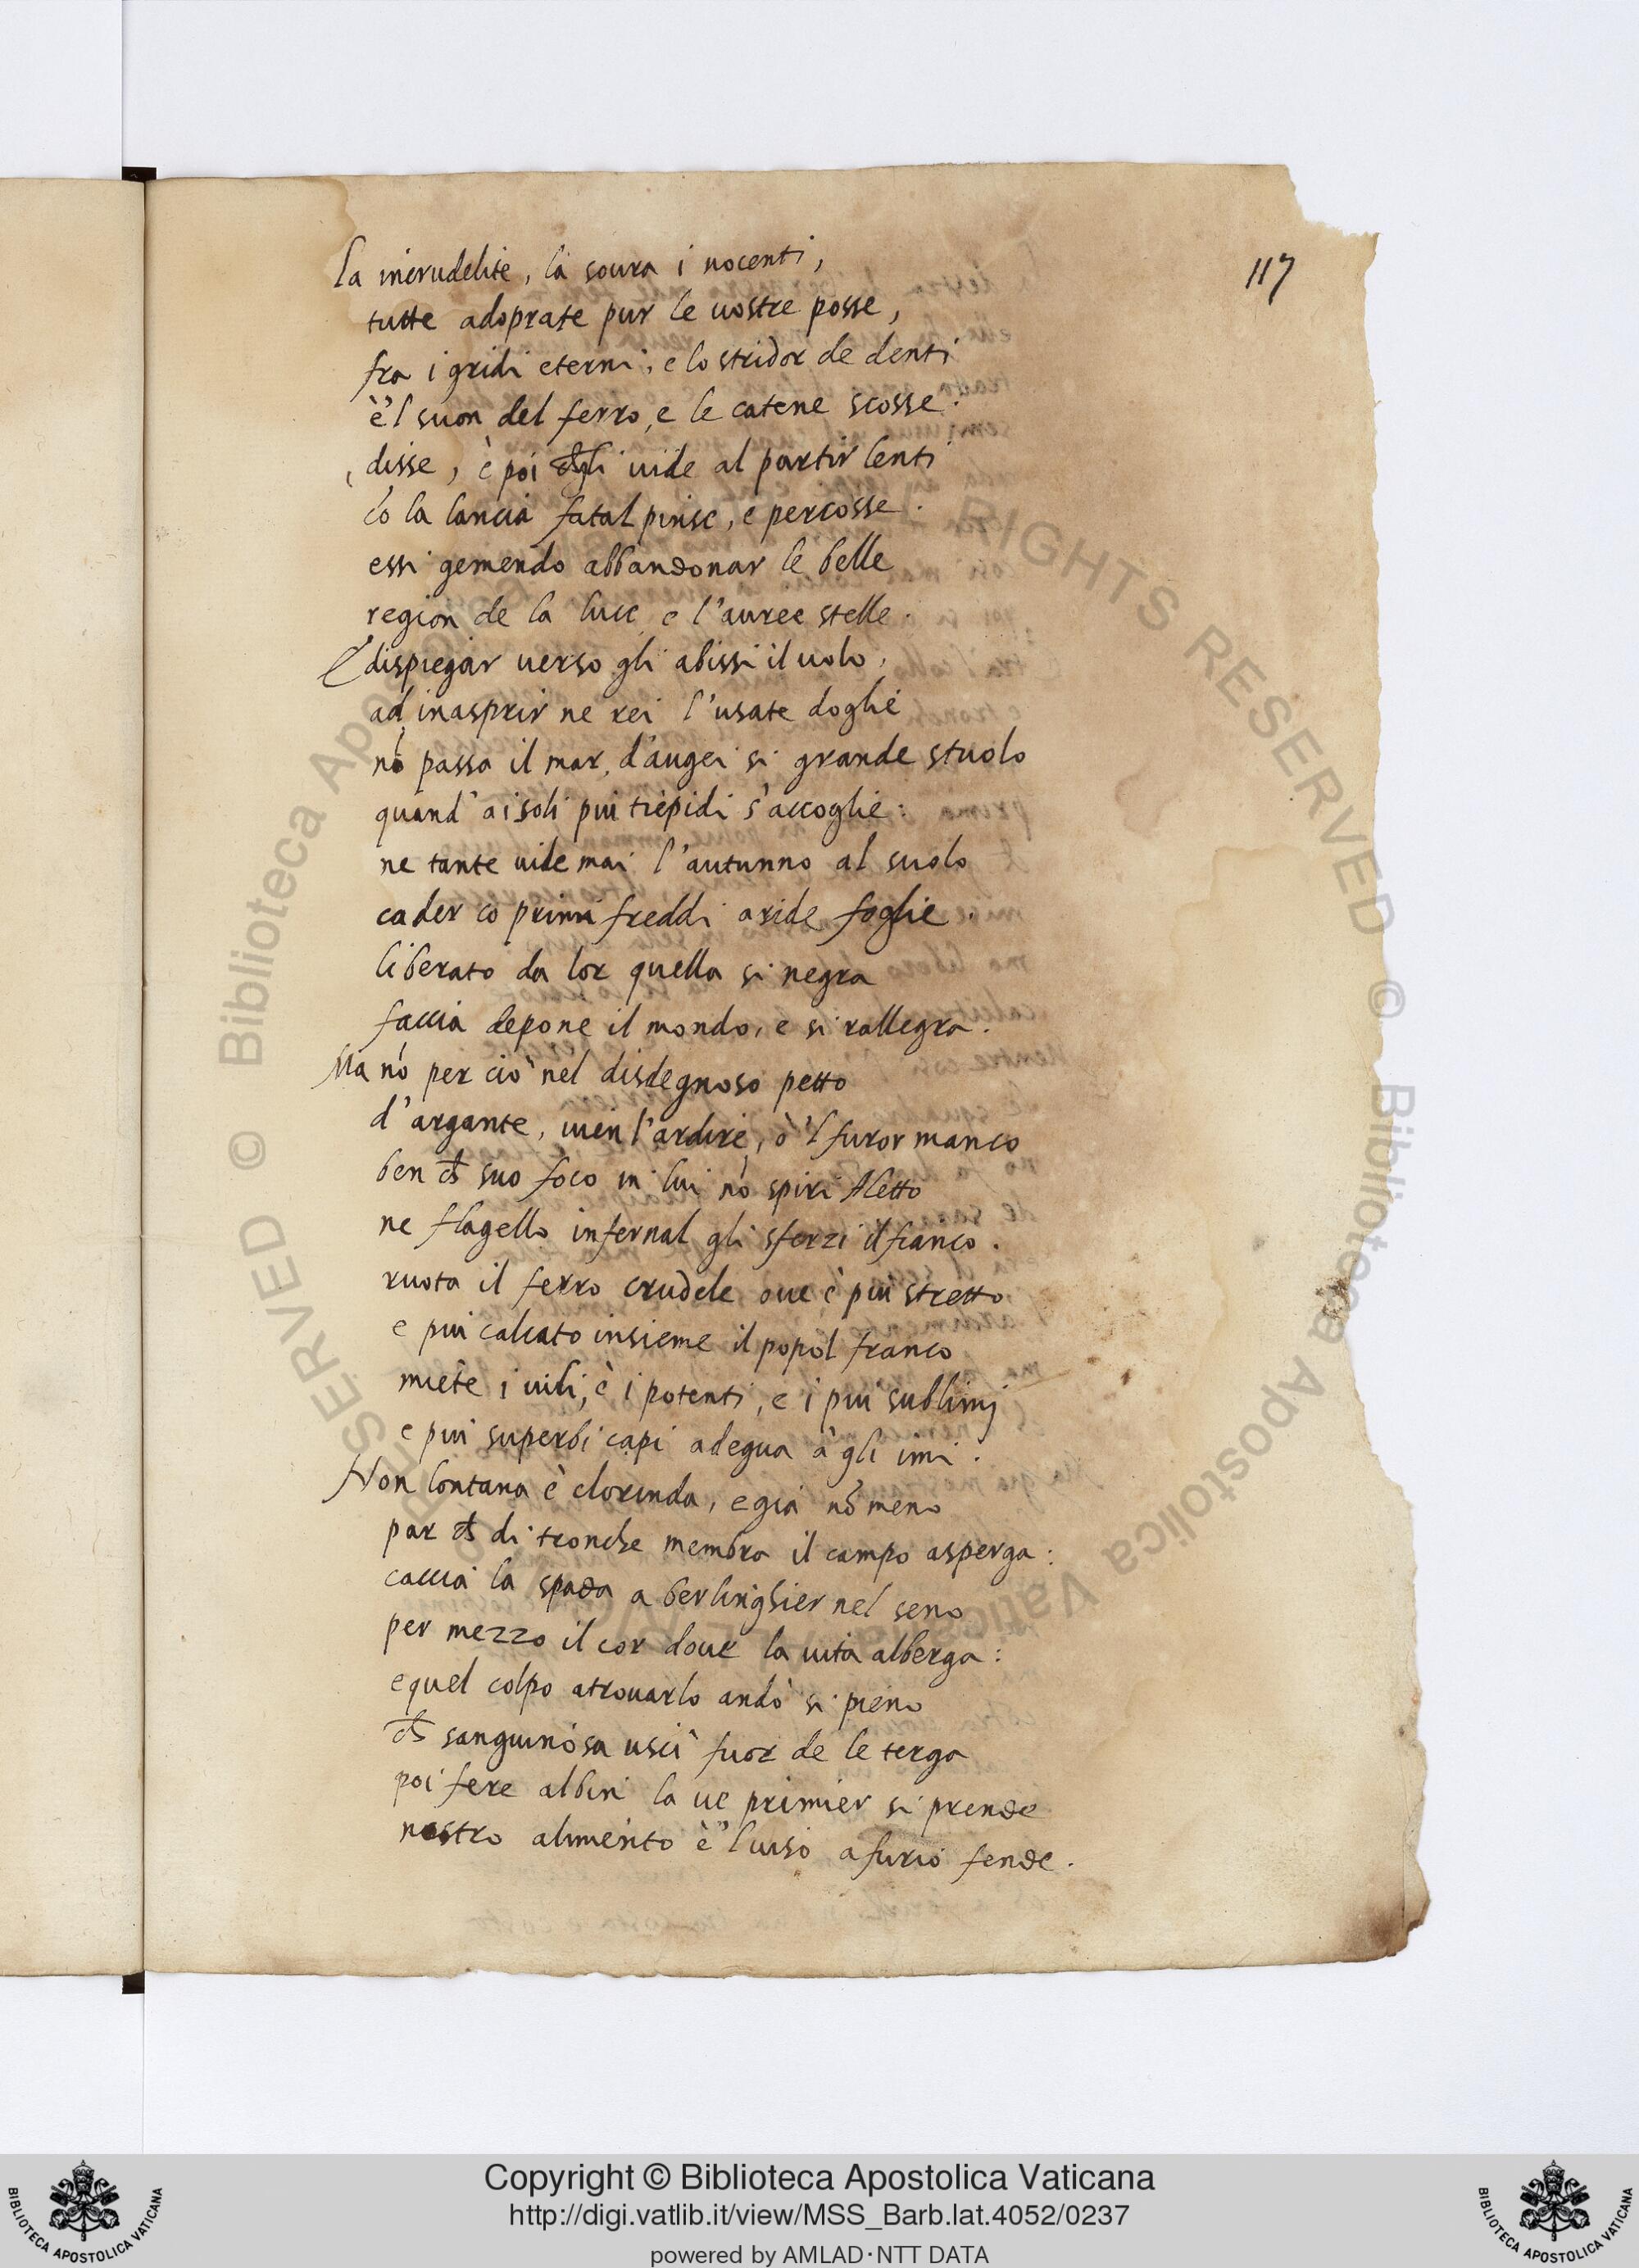 117
la incrudelite, la soura i nocenti,
tutte adoprate pur le uostre posse,
fra i gridi eterni, e lo stridor de denti
è'l suon del ferro, e le catene scosse.
disse, è poi ch'egli uide al partir lenti
cō la lancia fatal pinse, e percosse.
essi gemendo abbandonar le belle
region de la luce e l'auree stelle.
E dispiegar uerso gli abissi il uolo,
ad inasprir ne rei l'usate doglie
nō passa il mar, d'augei si grande stuolo
quand' ai soli piu tiepidi s'accoglie:
ne tante uide mai l'autunno al suolo
cader co primi freddi aride foglie.
liberato da lor quella si negra
faccia depone il mondo, e si rallegra.
Ma nō per ciò nel disdegnoso petto
d'argante, uien l'ardire, ò 'l furor manco
ben ch̄ suo foco in lui nō spiri Aletto
ne flagello infernal gli sferzi il fianco.
ruota il ferro crudele oue è piu stretto
e piu calcato insieme il popol franco
miete i uili, è i potenti, e i piu sublimj
e piu superbi capi adegua à gli imi.
Non lontana è clorinda, e gia nō meno
par ch̄ di tronche membra il campo asperga:
caccia la spada a berlinghier nel seno
per mezzo il cor doue la uita alberga:
e quel colpo a trouarlo andò si pieno
ch̄ sanguinosa uscì fuor de le terga
poi fere albin la ue primier si prende
nostro alimento è'l uiso a furio fende.
Copyright © Biblioteca Apostolica Vaticana
http://digi.vatlib.it/view/MSS_Barb.lat.4052/0237
powered by AMLAD·NTT DATA
BIBLIOTECA APOSTOLICA VATICANA
BIBLIOTECA APOSTOLICA VATICANA